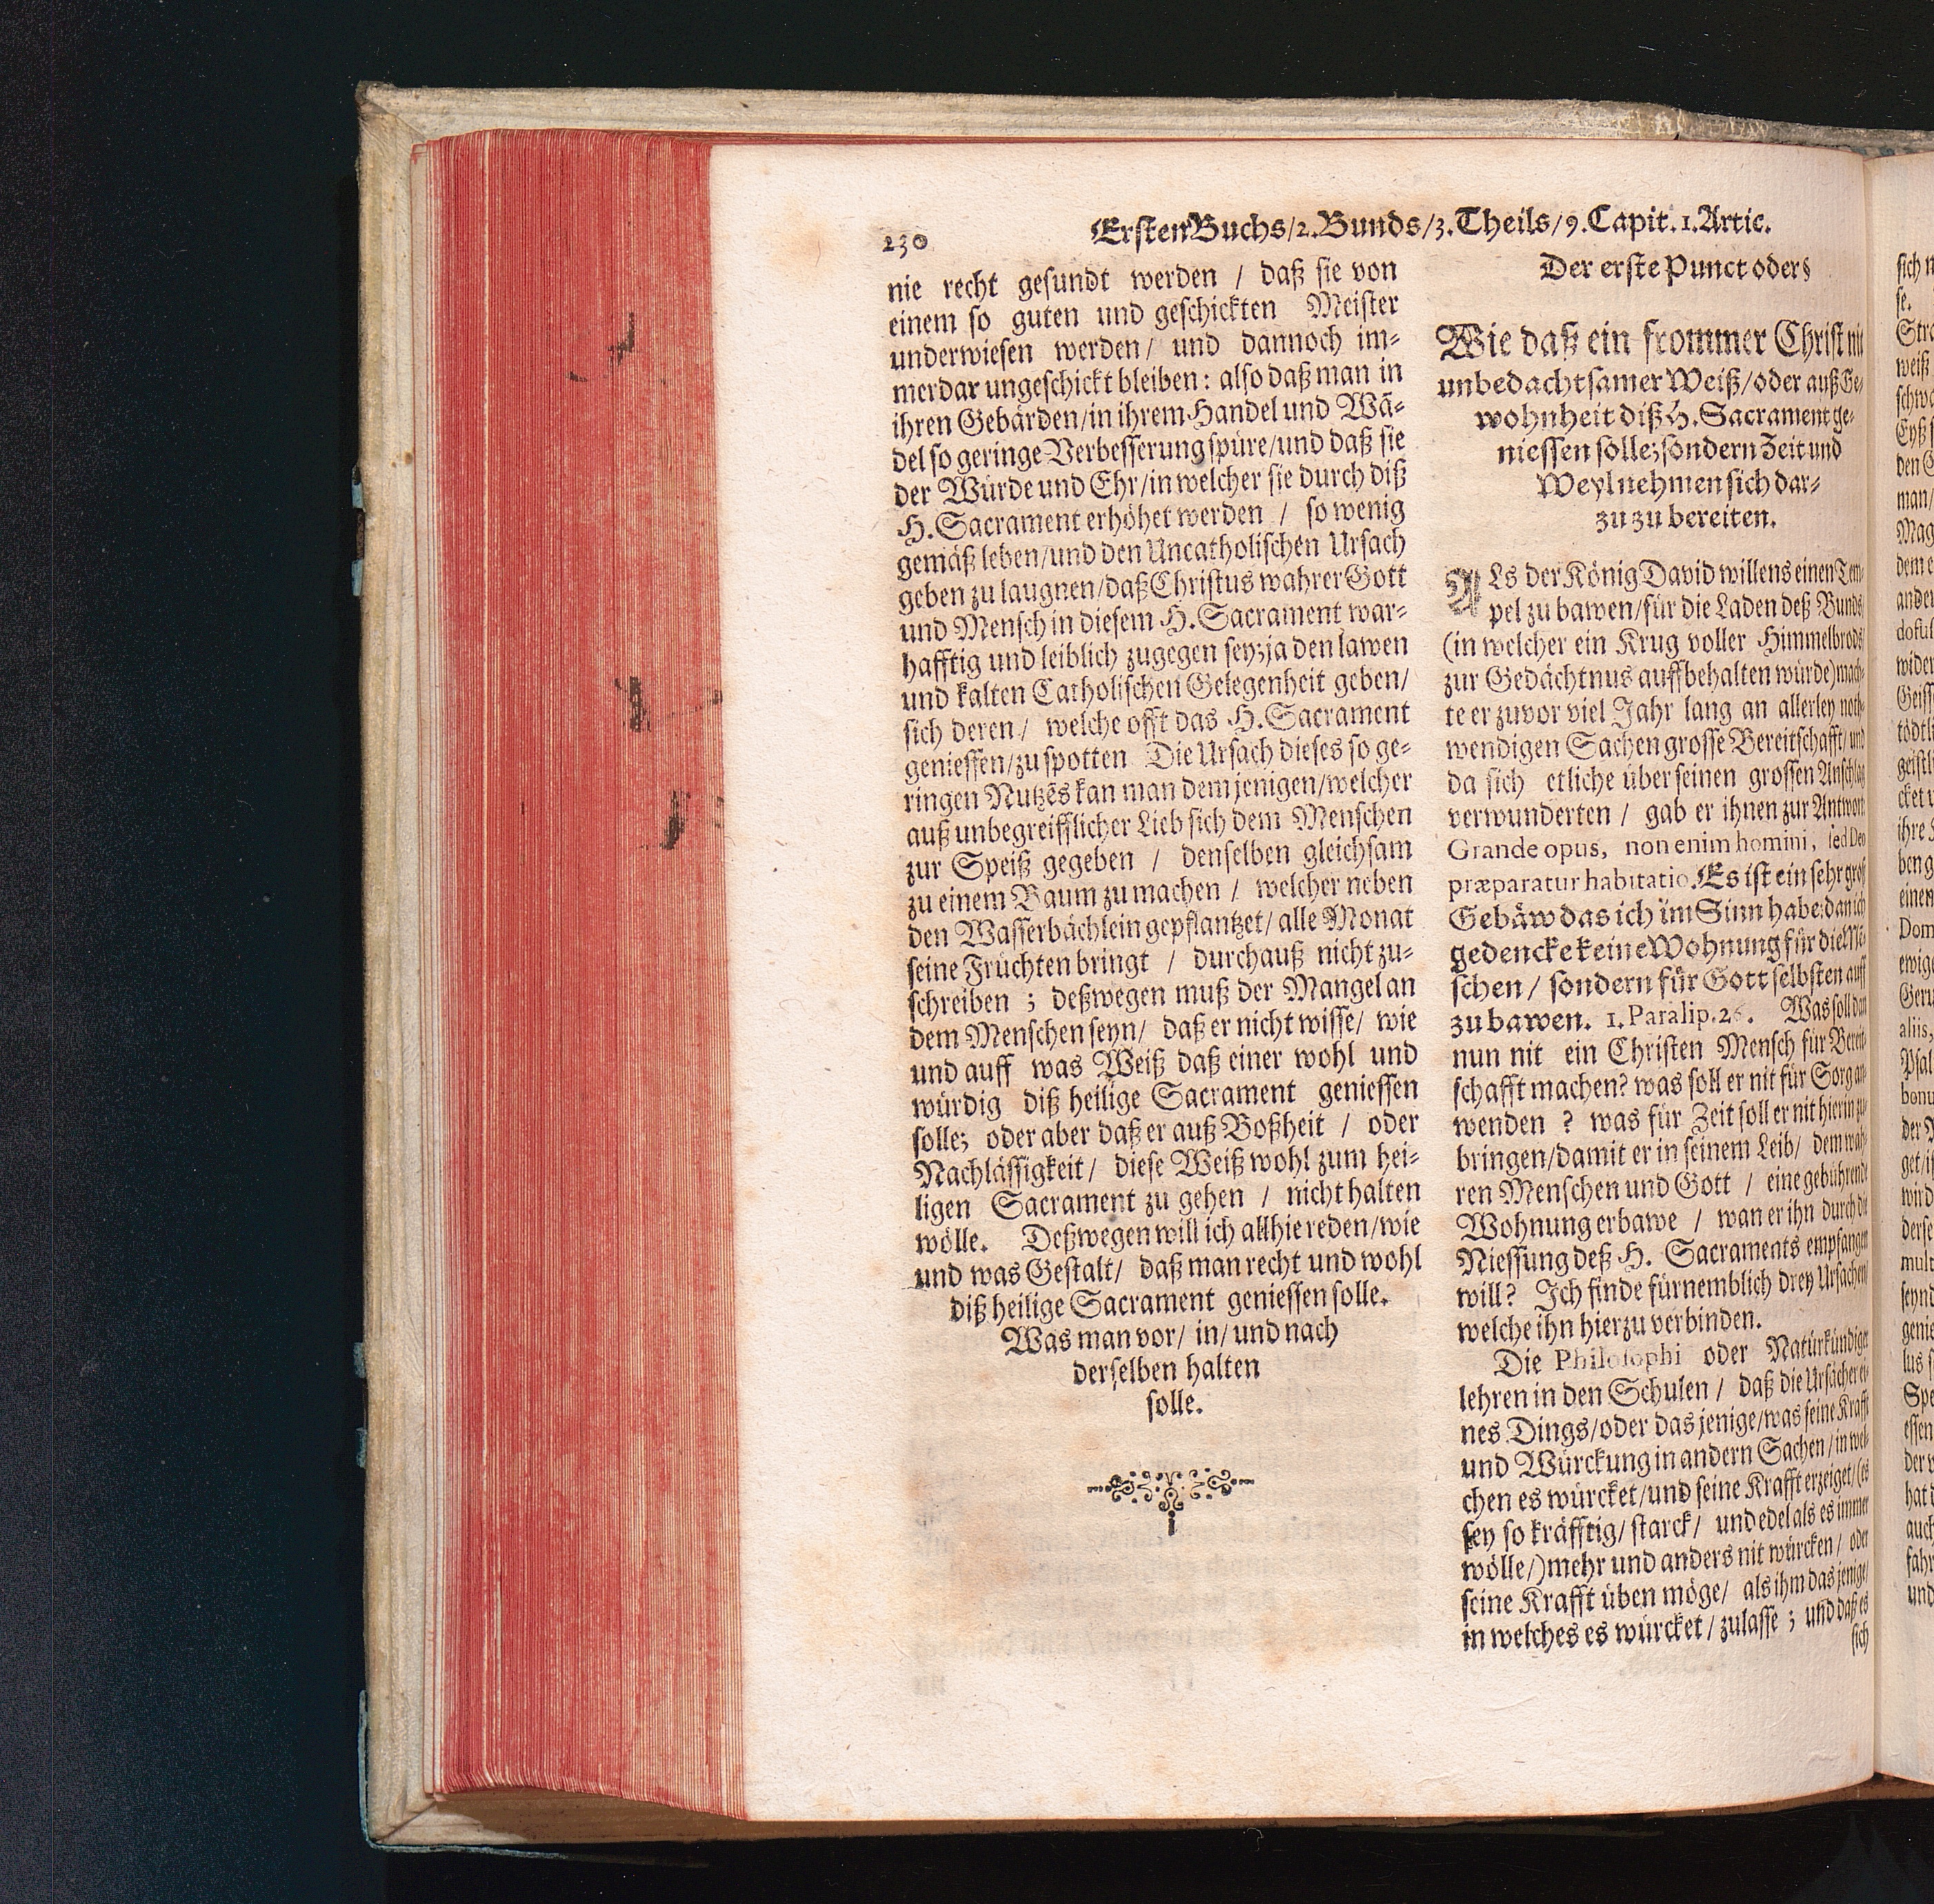 230
Ersten Buchs/2. Bunds/3. Theils/9. Capit. 1. Artic.
nie recht gesundt werden / daß sie von
einem so guten und geschickten Meister
underwiesen werden/ und dannoch im-
merdar ungeschickt bleiben: also daß man in
ihren Gebärden/in ihrem Handel und Wã-
del so geringe Verbesserung spüre/und daß sie
der Würde und Ehr/in welcher sie durch diß
H. Sacrament erhöhet werden / so wenig
gemäß leben/und den Uncatholischen Ursach
geben zu laugnen/daß Christus wahrer Gott
und Mensch in diesem H. Sacrament war-
hafftig und leiblich zugegen sey; ja den lawen
und kalten Catholischen Gelegenheit geben/
sich deren/ welche offt das H. Sacrament
geniessen/zu spotten Die Ursach dieses so ge-
ringen Nutzẽs kan man demjenigen/welcher
auß unbegreifflicher Lieb sich dem Menschen
zur Speiß gegeben / denselben gleichsam
zu einem Baum zu machen / welcher neben
den Wasserbächlein gepflantzet/ alle Monat
seine Früchten bringt / durchauß nicht zu-
schreiben ; deßwegen muß der Mangel an
dem Menschen seyn/ daß er nicht wisse/ wie
und auff was Weiß daß einer wohl und
würdig diß heilige Sacrament geniessen
solle; oder aber daß er auß Boßheit / oder
Nachlässigkeit/ diese Weiß wohl zum hei-
ligen Sacrament zu gehen / nicht halten
wölle. Deßwegen will ich allhie reden/wie
und was Gestalt/ daß man recht und wohl
diß heilige Sacrament geniessen solle.
Was man vor/ in/ und nach
derselben halten
solle.
Der erste Punct oder §
Wie daß ein frommer Christ nit
unbedachtsamer Weiß/oder auß Ge-
wohnheit diß H. Sacrament ge-
niessen solle; sondern Zeit und
Weyl nehmen sich dar-
zu zu bereiten.
ALs der König David willens einen Tem-
pel zu bawen/für die Laden deß Bunds/
(in welcher ein Krug voller Himmelbrods/
zur Gedächtnus auffbehalten würde) mach-
te er zuvor viel Jahr lang an allerley noth-
wendigen Sachen grosse Bereitschafft/ und
da sich etliche über seinen grossen Anschlag
verwunderten / gab er ihnen zur Antwort:
Grande opus, non enim homini, sed Deo
præparatur habitatio. Es ist ein sehr groß
Gebäw das ich im Sinn habe: dan ich
gedencke keine Wohnung für die Mẽ-
schen/ sondern für Gott selbsten auff
zu bawen. 1. Paralip. 26. Was soll dan
nun nit ein Christen Mensch für Bereit-
schafft machen? was soll er nit für Sorg an-
wenden ? was für Zeit soll er nit hierin zu-
bringen/damit er in seinem Leib/ dem wah-
ren Menschen und Gott / eine gebührende
Wohnung erbawe / wan er ihn durch die
Niessung deß H. Sacraments empfangen
will? Ich finde fürnemblich drey Ursachen
welche ihn hierzu verbinden.
Die Philosophi oder Natürkündiger
lehren in den Schulen / daß die Ursächer ei-
nes Dings/oder das jenige/was seine Krafft
und Würckung in andern Sachen/in wel-
chen es würcket/und seine Krafft erzeiget/(es
sey so kräfftig/ starck/ und edel als es immer
wölle/) mehr und anders nit würcken/ oder
seine Krafft üben möge/ als ihm das jenige/
in welches es würcket/ zulasse ; und daß es
sich